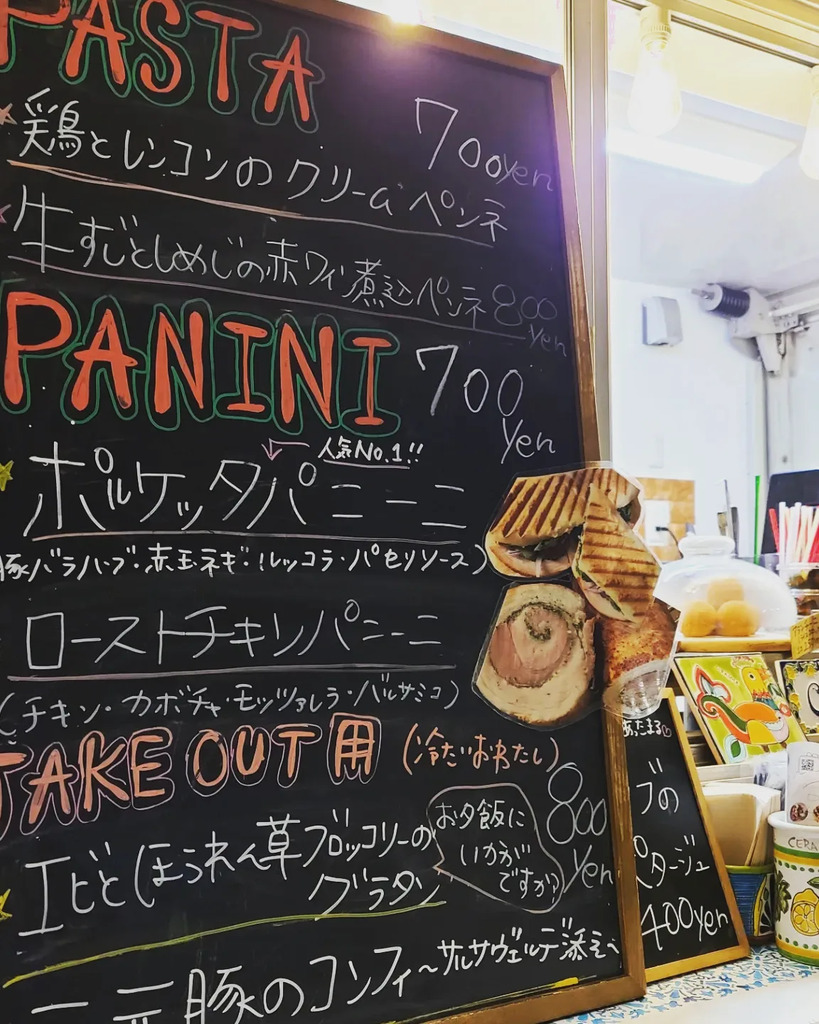 PASTA
鶏とレンコンのクリームペンネ 700yen
牛すじとしめじの赤ワイン煮込ペンネ 800yen
PANINI 700yen
人気No.1!!
ポルケッタパニーニ
豚バラハーブ・赤玉ネギ・ルッコラ・パセリソース)
ローストチキンパニーニ
(チキン・カボチャ・モッツァレラ・バルサミコ)
TAKE OUT用 (冷たいおわたし)
エビとほうれん草ブロッコリーの
グラタン
800yen
お夕飯に
いかが
ですか?
三元豚のコンフィ〜サルサヴェルデ添え〜
あったまる
ブの
ポタージュ
400yen
CERA